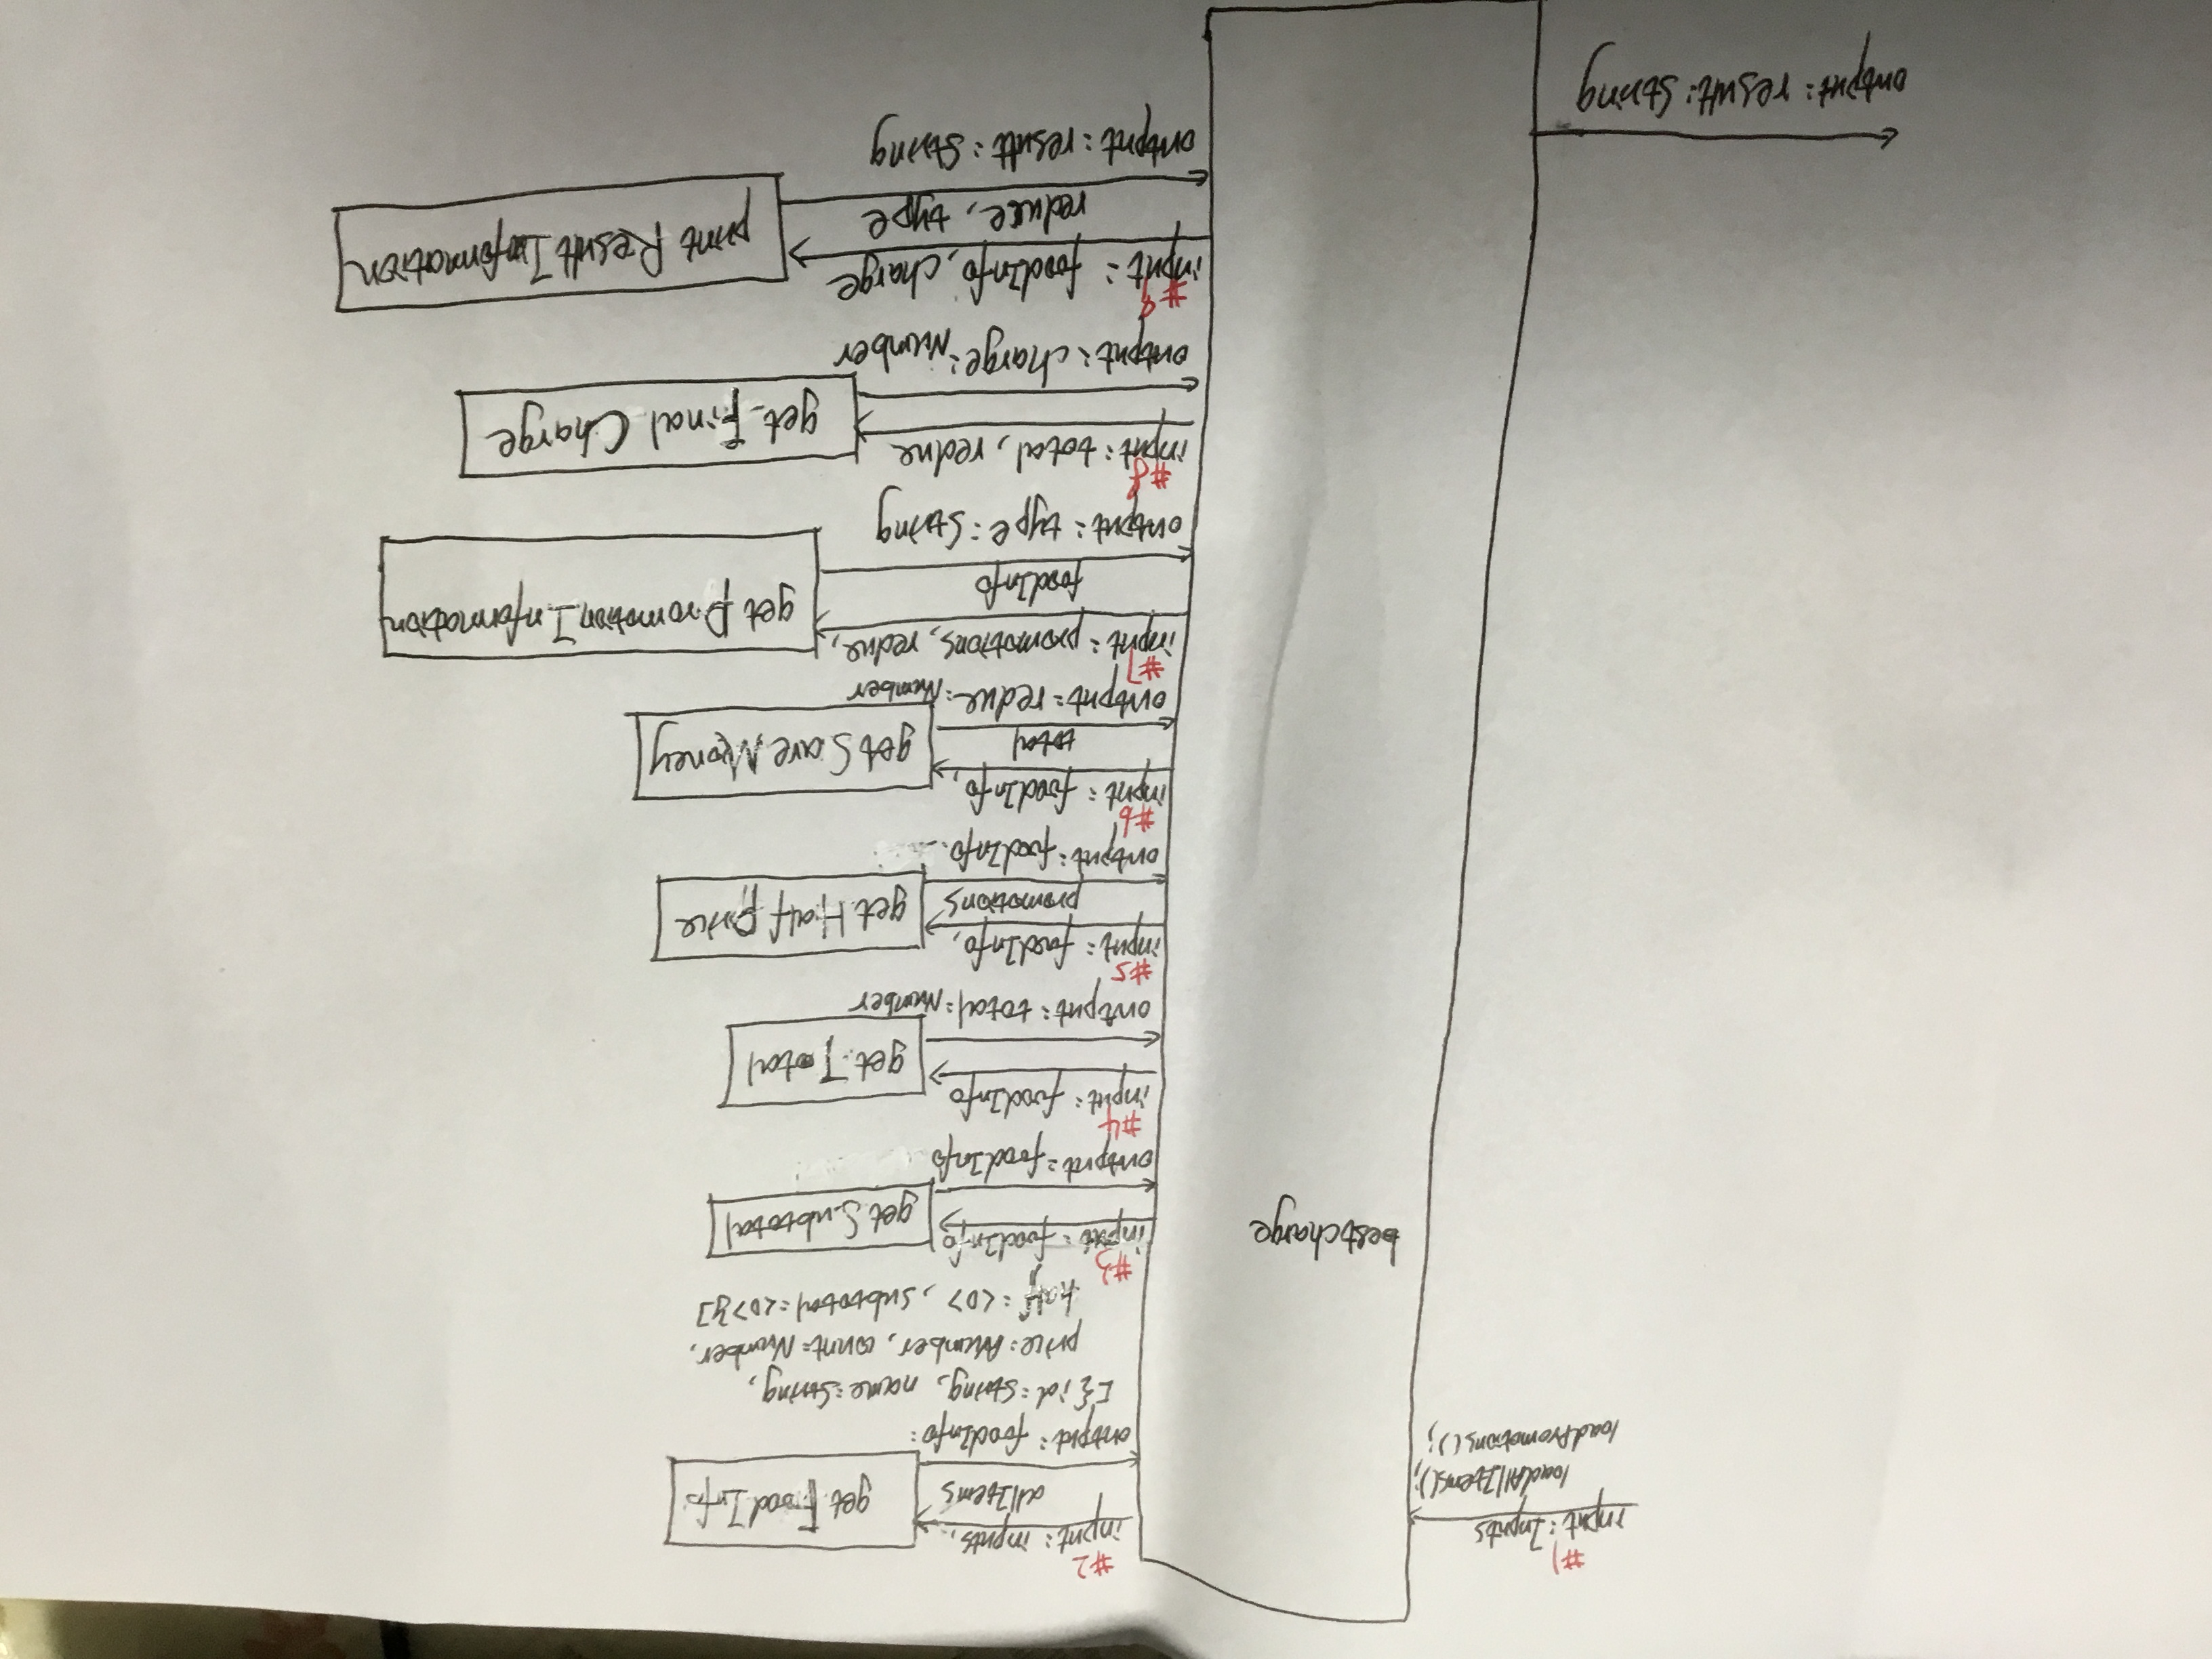 #1
input: Inputs
loadAllItems();
loadPromotions();
bestcharge
#2
input: inputs,
allItems
getFoodInfo
output: foodInfo:
[{id:String, name:String,
price:Number, count:Number,
half:<0>, subtotal:<0>}]
#3
input: foodInfo
getSubtotal
output: foodInfo
#4
input: foodInfo
getTotal
output: total: Number
#5
input: foodInfo,
promotions
getHalfPrice
output: foodInfo
#6
input: foodInfo,
total
getSaveMoney
output: redue: Number
#7
input: promotions, redue,
foodInfo
getPromotionInformation
output: type: String
#8
input: total, redue
getFinalCharge
output: charge: Number
#9
input: foodInfo, charge
reduce, type
printResultInformation
output: result: String
output: result: String